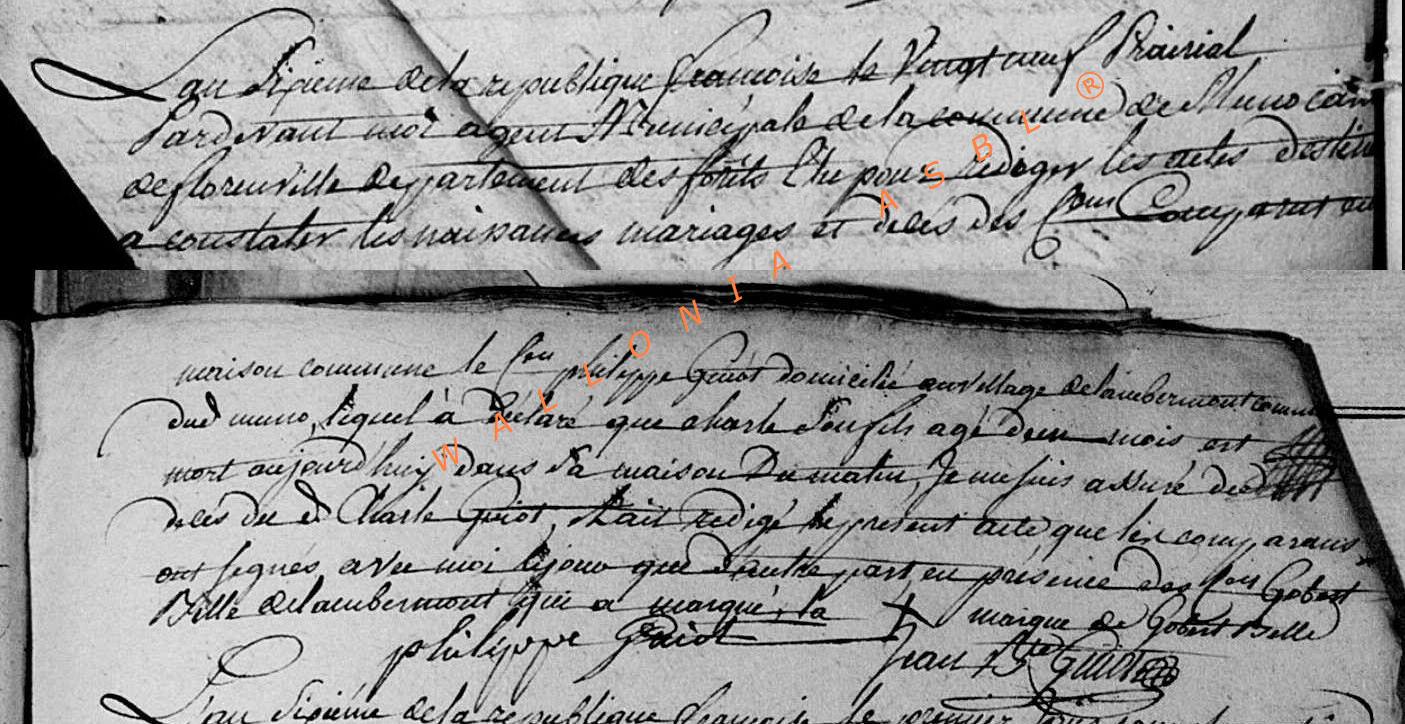 L'an sixieme de la republique francoise le vingt neuf Prairial
Pardevant moi agent Municipale de la commune de Muno can
de florenville departement des forêts Elu pour rediger les actes destin
a constater les naissances mariages et deces des Comparut en
maison commune le philippe Guiot domicilié au village de lambermont comm
dud muno, lequel à déclaré que charle son fils agé d'un mois est
mort aujourd'huy dans sa maison Du matin, Je me suis assuré du
deces du d Charle Guiot, J'ait redigé le present acte que les comparans
ont signés avec moi lejour que d'autre part, en présence des Gobert
Bille de lambermont qui a marqué, la + marque de Gobert Belle
philippe Guiot Jean Bte Guiot
L'an sixieme de la republique francoise le premier
WALLONIA ASBL ®